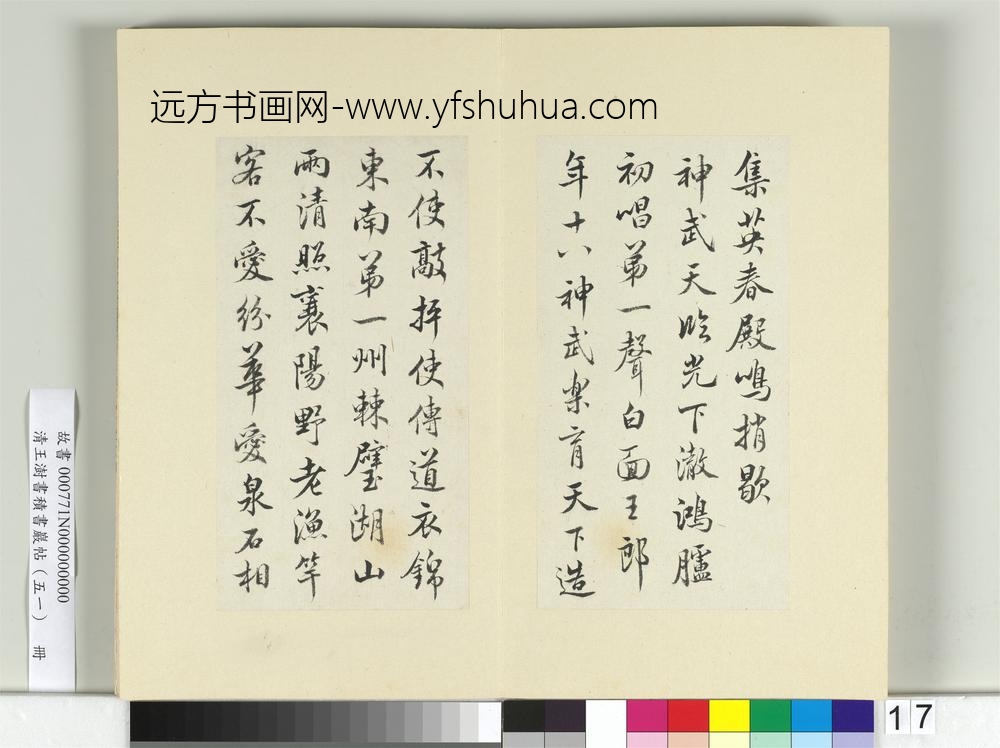 远方书画网-www.yfshuhua.com
集英春殿鳴捎歇
神武天臨光下澈鴻臚
初唱第一聲白面王郎
年十八神武樂育天下造
不使敲抨使傳道衣錦
東南第一州棘璧湖山
兩清照襄陽野老漁竿
客不愛紛華愛泉石相
故書 000771N000000000
清王澍書積書巖帖（五一） 冊
17